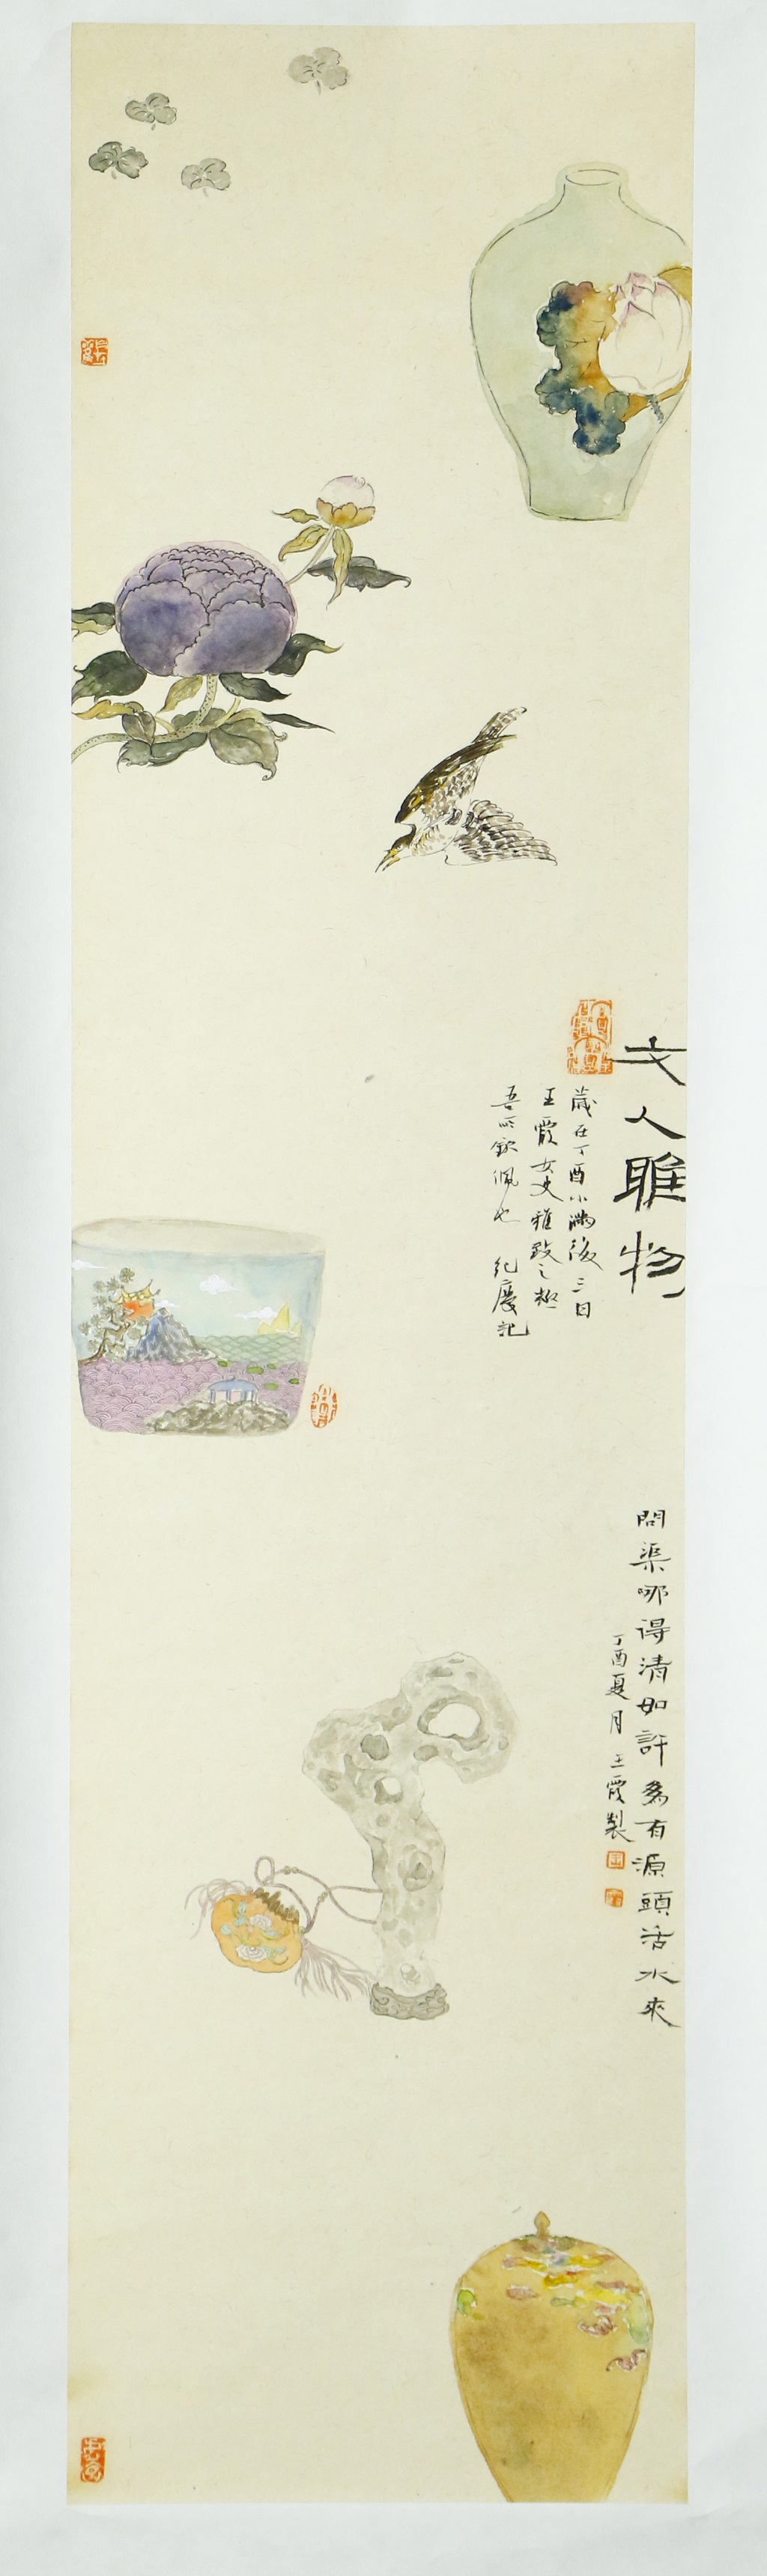 文人雎物
歲在丁酉小滿後三日
王霞女史雅致之極
吾所欽佩也 紀慶記
問渠哪得清如許為有源頭活水來
丁酉夏月 王霞製